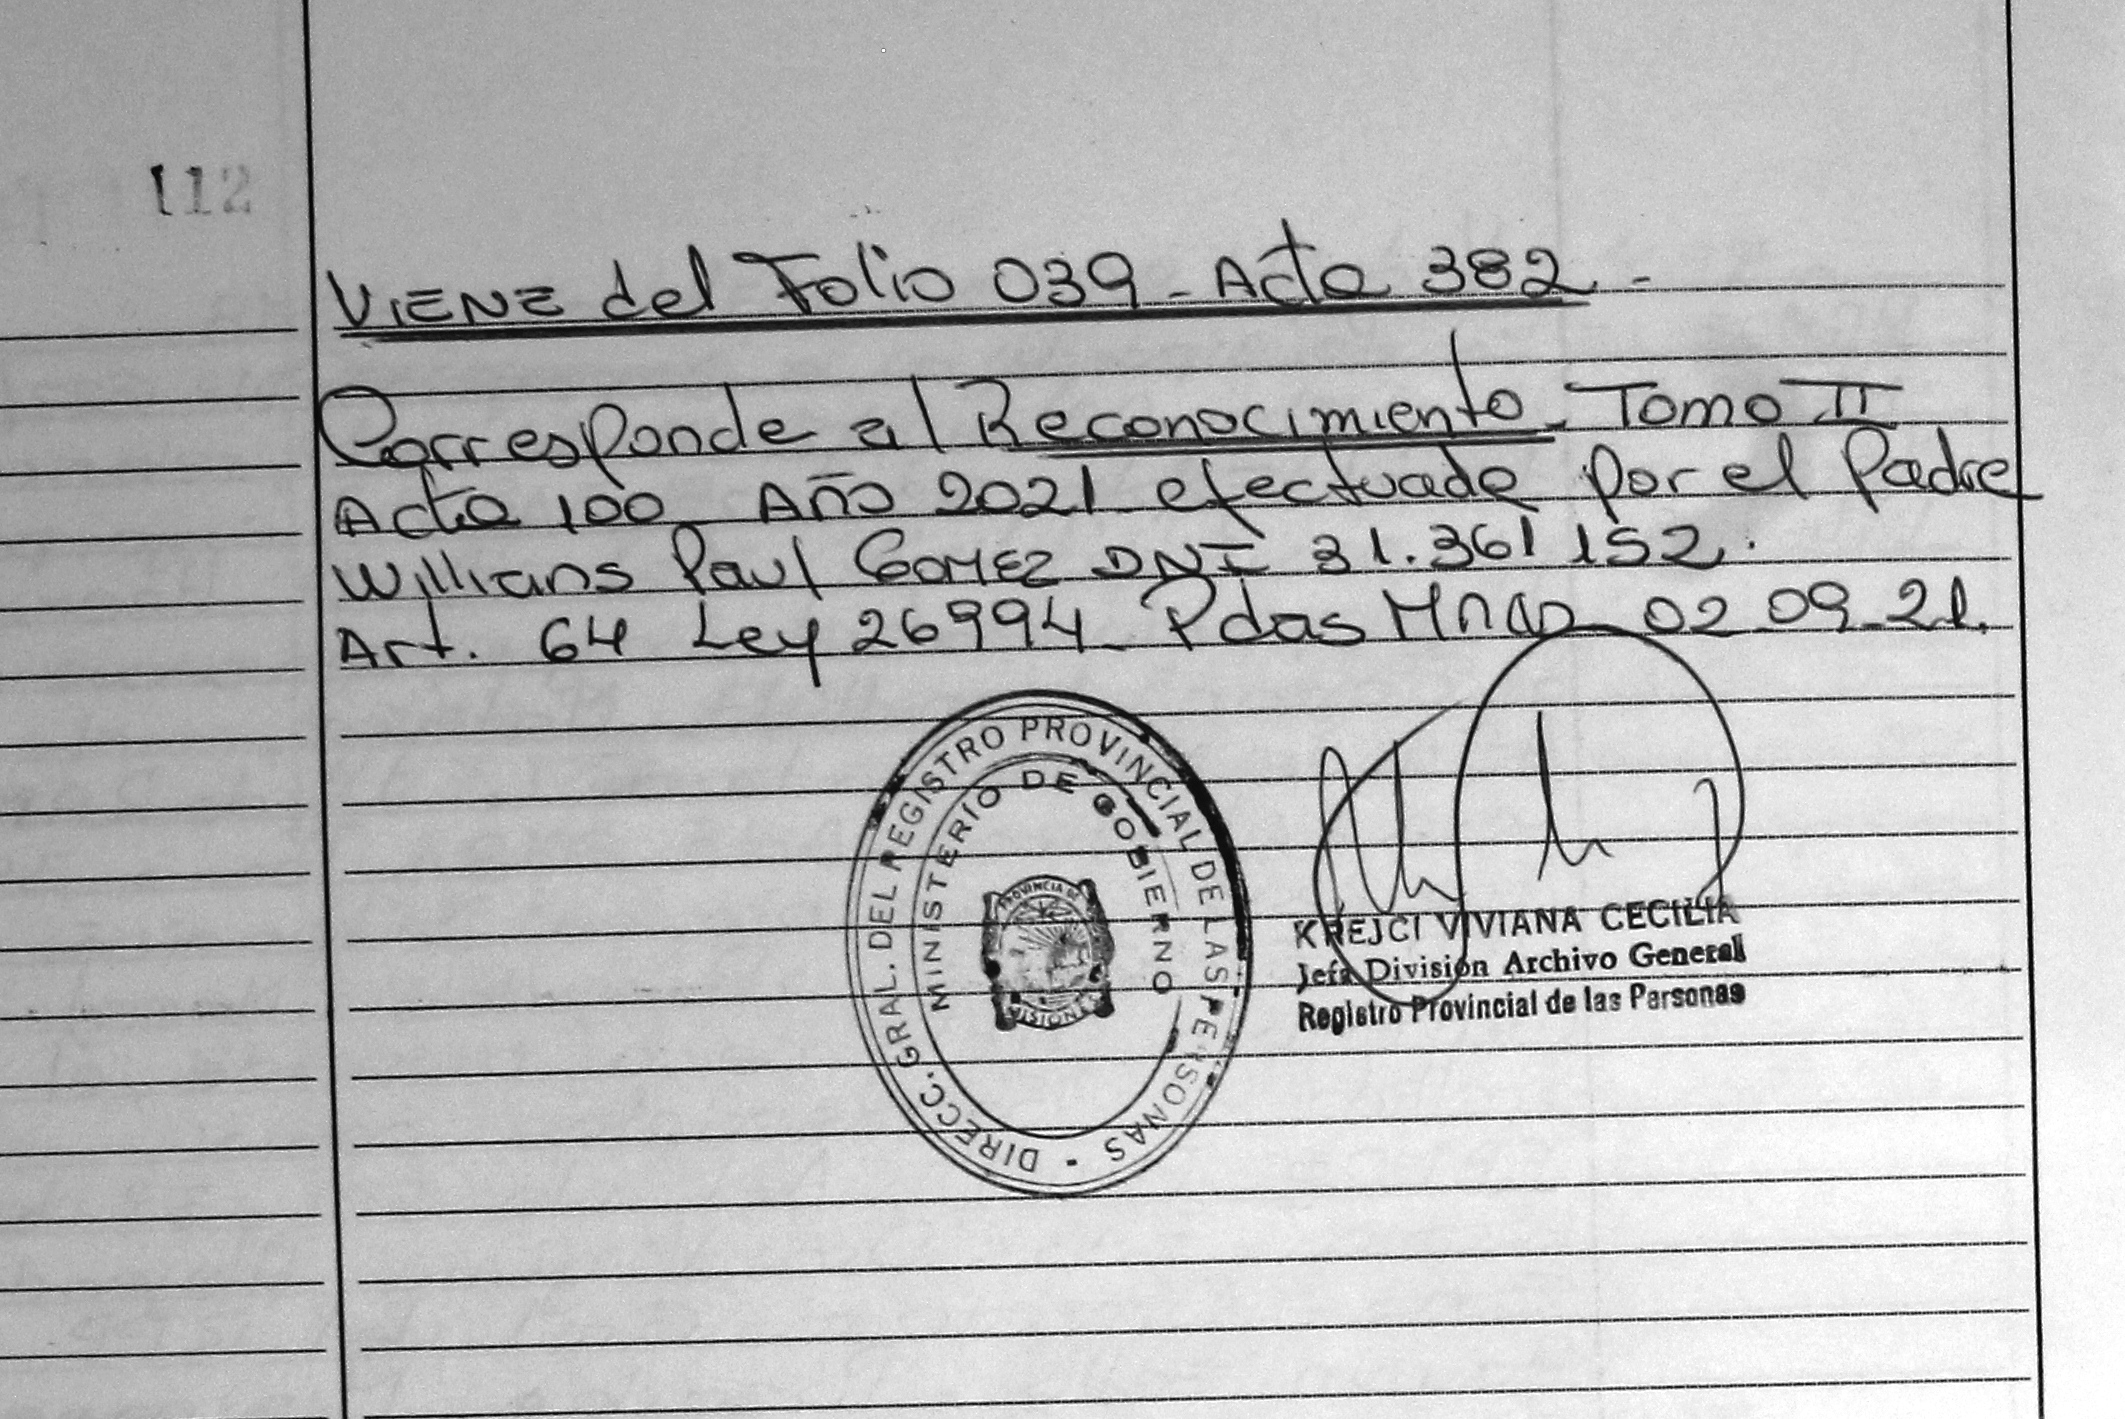 112
VIENE del Folio 039 - Acta 382 -
Corresponde al Reconocimiento - Tomo II
Acta 100 Año 2021 efectuada por el Padre
Willians Paul GOMEZ DNI 31.361 152.
Art. 64 Ley 26994 - Pdas Mnas 02 09 - 21.
DIRECC. GRAL. DEL REGISTRO PROVINCIAL DE LAS PERSONAS -
MINISTERIO DE GOBIERNO
PROVINCIA DE
MISIONES
KREJCI VIVIANA CECILIA
Jefa División Archivo General
Registro Provincial de las Personas